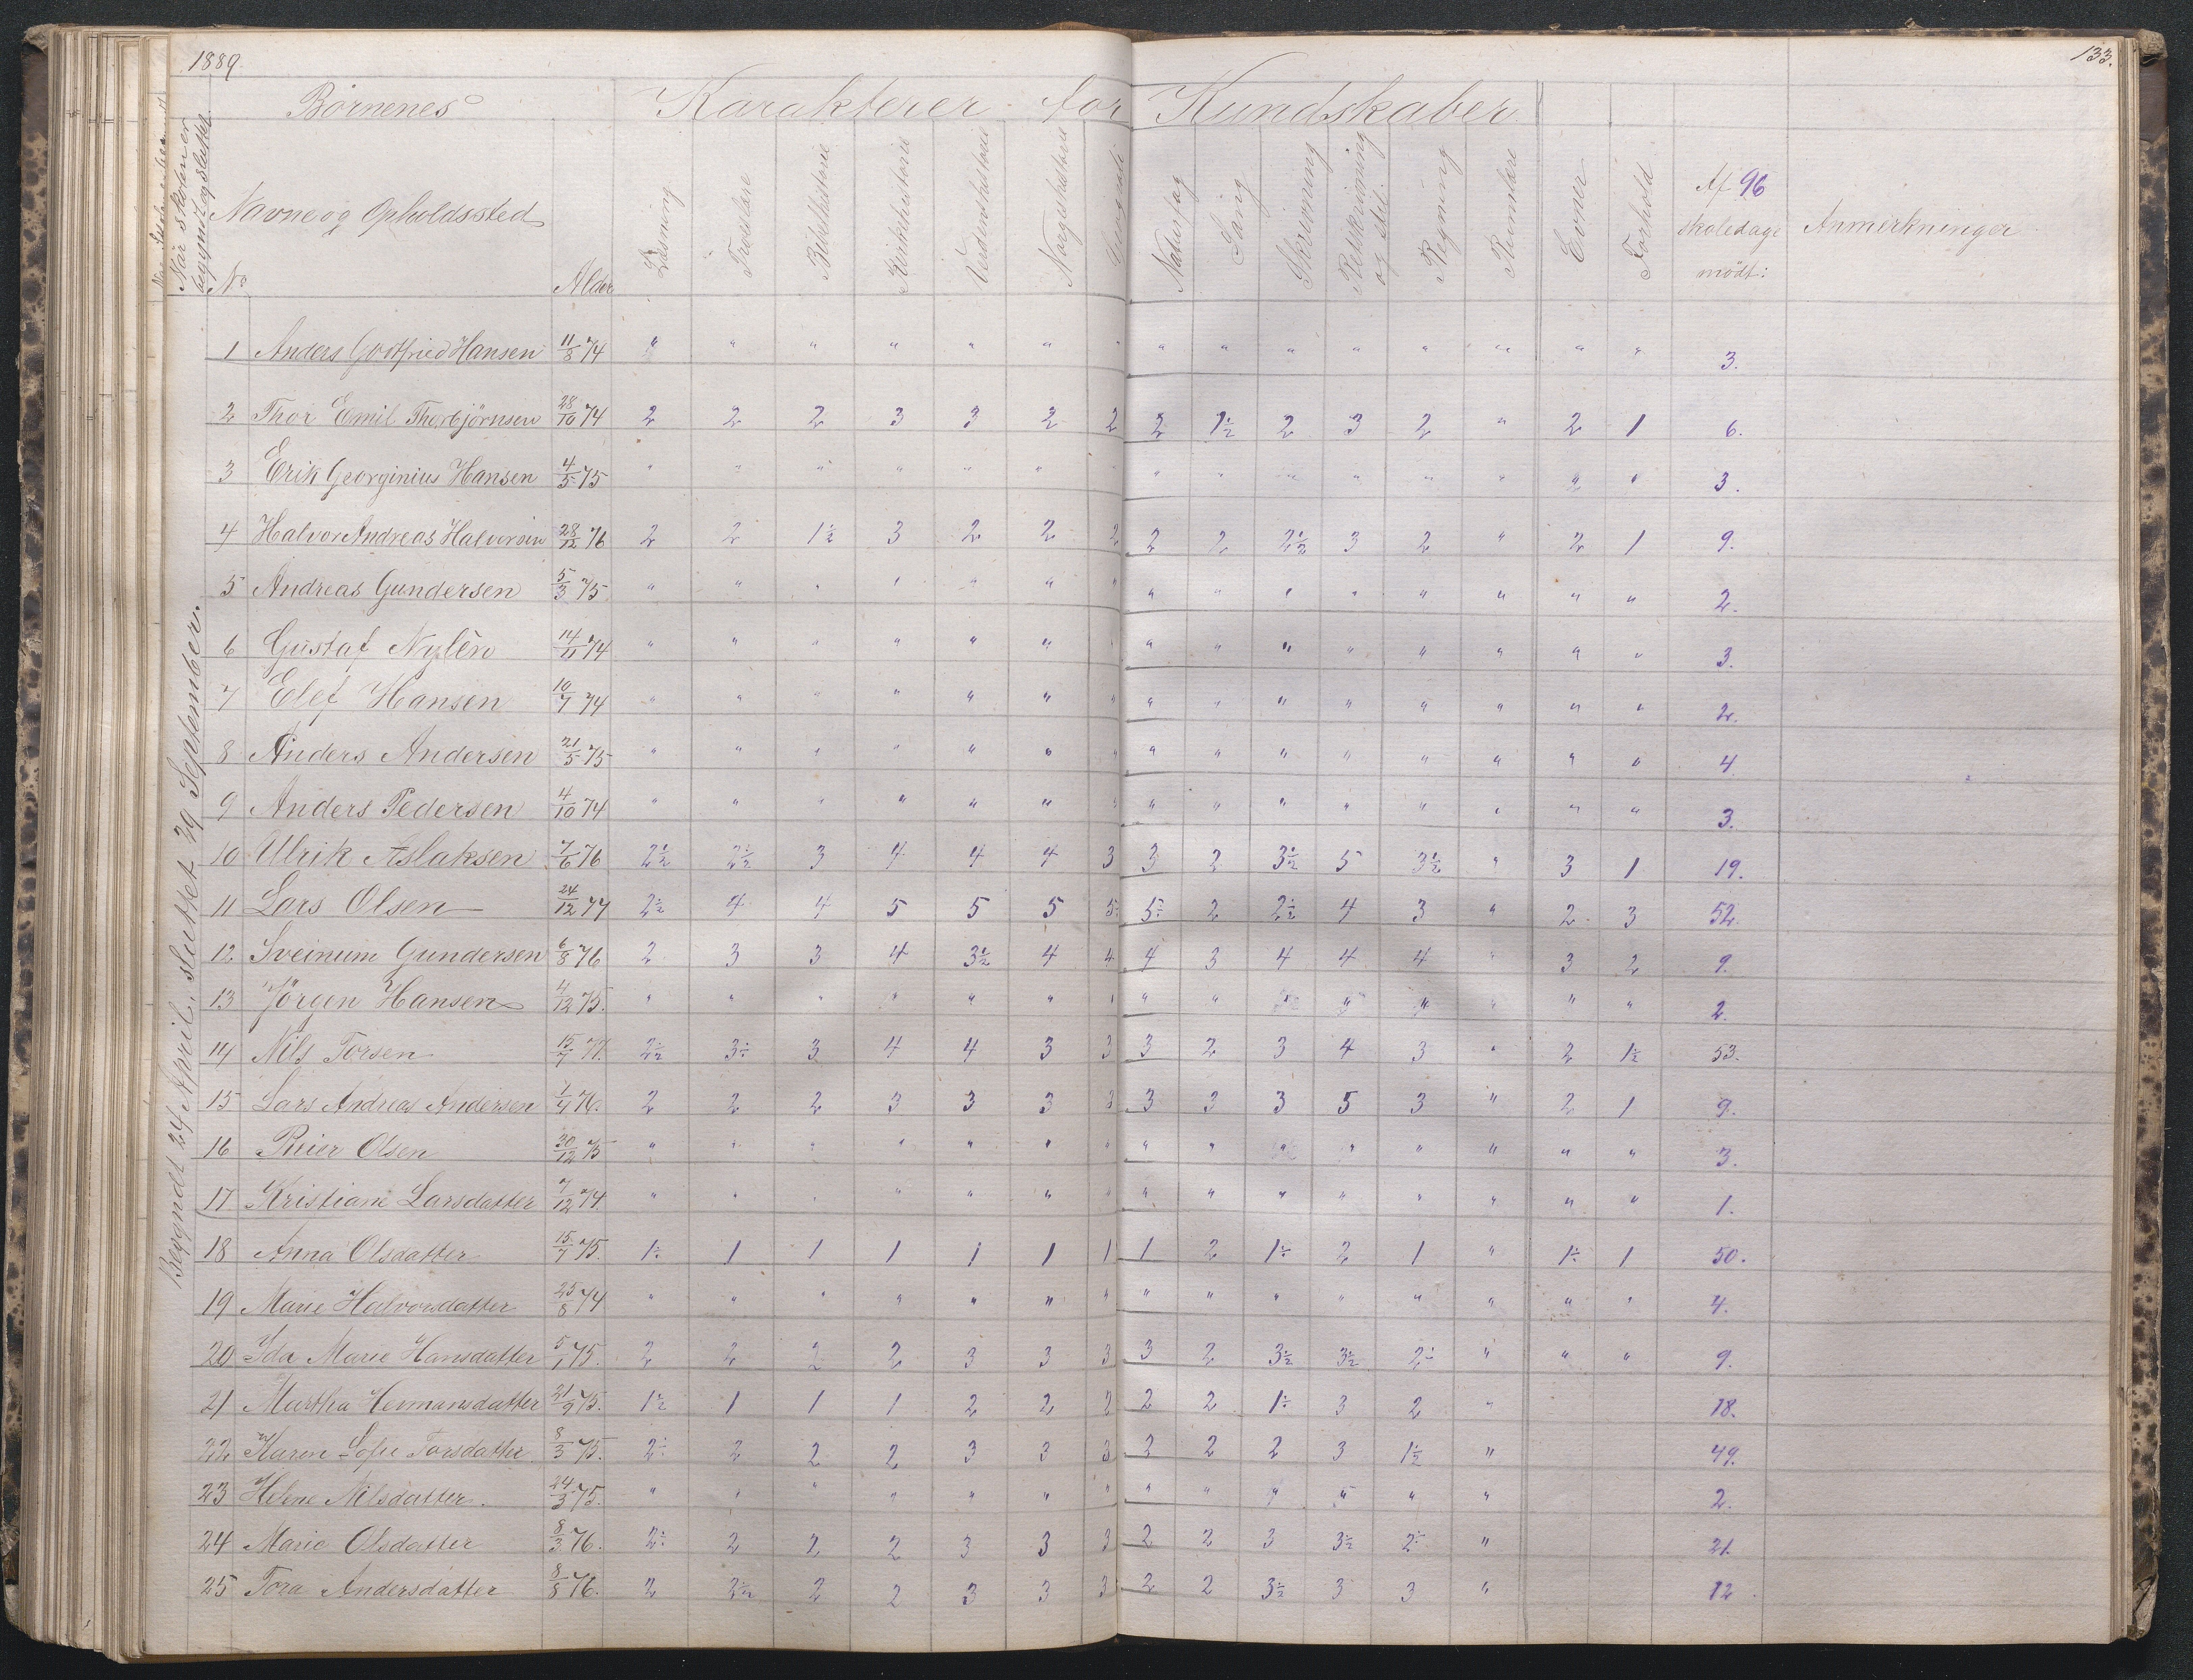 1889.
133.
Børnenes Karakterer for Kundskaber.
Når skolen er begyndt og sluttet.
Navne og Opholdssted
No
Alder
Læsning
Troeslære
Bibelhistorie
Kirkehistorie
Verdenshistorie
Norgeshistorie
Naturfag
Sang
Skrivning
Retskrivning og stil.
Regning
Rumlære
Evner
Forhold
Af 96 skoledage mödt:
Anmerkninger
Begyndt 24 April, sluttet 29 September.
1 Anders Gotfried Hansen 11/8 74 " " " " " " " " " " " " " " " 3.
2 Thor Emil Thorbjörnsen 28/10 74 2 2 2 3 3 2 2 2 1½ 2 3 2 " 2 1 6.
3 Erik Georginius Hansen 4/5 75 " " " " " " " " " " " " " " 3.
4 Halvor Andreas Halvorsen 28/12 76 2 2 1½ 3 2 2 2 2 2 2½ 3 2 " 2 1 9.
5 Andreas Gundersen 5/3 75. " " " " " " " " " " " " " " " 2.
6 Gustaf Nylén 14/11 74 " " " " " " " " " " " " " " " 3.
7 Elef Hansen 10/7 74 " " " " " " " " " " " " " " " 2.
8 Anders Andersen 21/5 75 " " " " " " " " " " " " " " " 4
9 Anders Pedersen 4/10 74 " " " " " " " " " " " " " " " 3.
10 Ulrik Aslaksen 7/6 76 2½ 2½ 3 4 4 4 3 3 2 3½ 5 3½ " 3 1 19.
11 Lars Olsen 24/12 77 2½ 4 4 5 5 5 5÷ 5÷ 2 2½ 4 3 " 2 3 52.
12. Sveinum Gundersen 6/8 76 2 3 3 4 3½ 4 4 4 3 4 4 4 " 3 2 9.
13 Jörgen Hansen 4/12 75. " " " " " " " " " " " " " " " 2.
14 Nils Torsen 15/7 77. 2½ 3÷ 3 4 4 3 3 3 2 3 4 3 " 2 1½ 53.
15 Lars Andreas Andersen 1/4 76. 2 2 2 3 3 3 3 3 3 3 5 3 " 2 1 9.
16 Olsen 30/12 75 " " " " " " " " " " " " " " " 3.
17 Kristiane Larsdatter 7/12 74. " " " " " " " " " " " " " " " 1.
18 Anna Olsdatter 15/7 75. 1÷ 1 1 1 1 1 1 1 2 1÷ 2 1 " 1÷ 1 50.
19 Marie Halvorsdatter 25/8 74 " " " " " " " " " " " " " " " 4.
20 Ida Marie Hansdatter 5/1 75. 2 2 2 2 3 3 3 3 2 3½ 3½ 2÷ " " " 9.
21 Martha Hermansdatter 21/9 75. 1½ 1 1 1 2 2 2 2 2 1÷ 3 2 " 18.
22 Karen Sofie Torsdatter 8/3 75. 2÷ 2 2 2 3 3 3 2 2 2 3 1½ " 49.
23 Helene Nilsdatter. 24/3 75. " " " " " " " " " " " " " 2.
24 Marie Olsdatter 8/3 76. 2÷ 2 2 2 3 3 3 2 2 3 3½ 2÷ " 21.
25 Tora Andersdatter 8/8 76. 2 2½ 2 2 3 3 3 2 2 3½ 3 3 " 12.